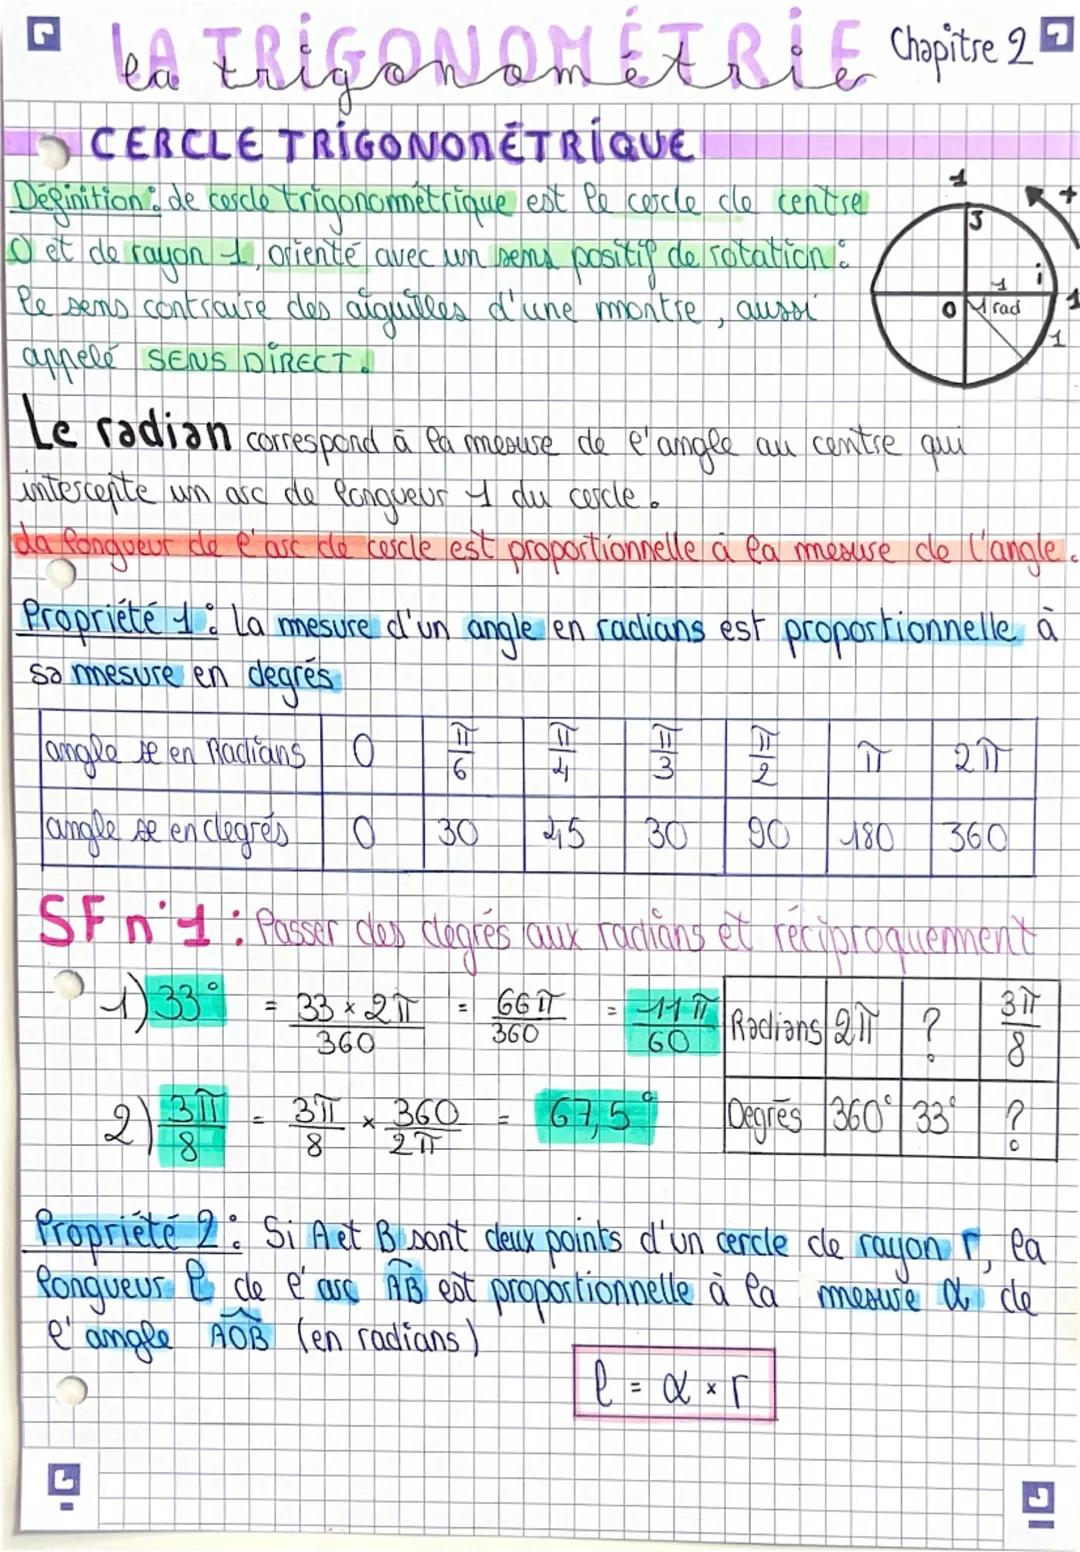 LA TRIGONOMÉTRIE
la trigonométrie
Chapitre 2
CERCLE TRIGONOMÉTRIQUE
Définition : Le cercle trigonométrique est le cercle de centre
O et de rayon 1, orienté avec un sens positif de rotation :
le sens contraire des aiguilles d'une montre, aussi
appelé SENS DIRECT.
1
+
J
1
i
O
1 rad
1
1
Le radian correspond à la mesure de l'angle au centre qui
intercepte un arc de longueur 1 du cercle.
La longueur de l'arc de cercle est proportionnelle à la mesure de l'angle.
Propriété 1 : La mesure d'un angle en radians est proportionnelle à
sa mesure en degrés
angle se en Radians 0 π/6 π/4 π/3 π/2 π 2π
angle se en degrés 0 30 45 30 90 180 360
SF n°1 : Passer des degrés aux radians et réciproquement
1) 33° = 33 × 2π / 360 = 66π / 360 = 11π / 60
Radians 2π ? 3π/8
2) 3π/8 = 3π/8 × 360/2π = 67,5°
Degrés 360° 33° ?
Propriété 2 : Si A et B sont deux points d'un cercle de rayon r, la
longueur l de l'arc AB est proportionnelle à la mesure α de
l'angle AOB (en radians)
l = α × r